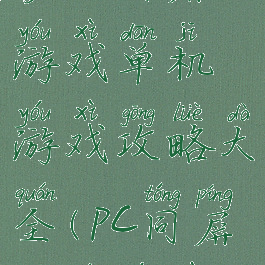 yóu xì dān jī
游戏单机
yóu xì gōng lüè dà
游戏攻略大
quán tóng píng
全(PC同屏